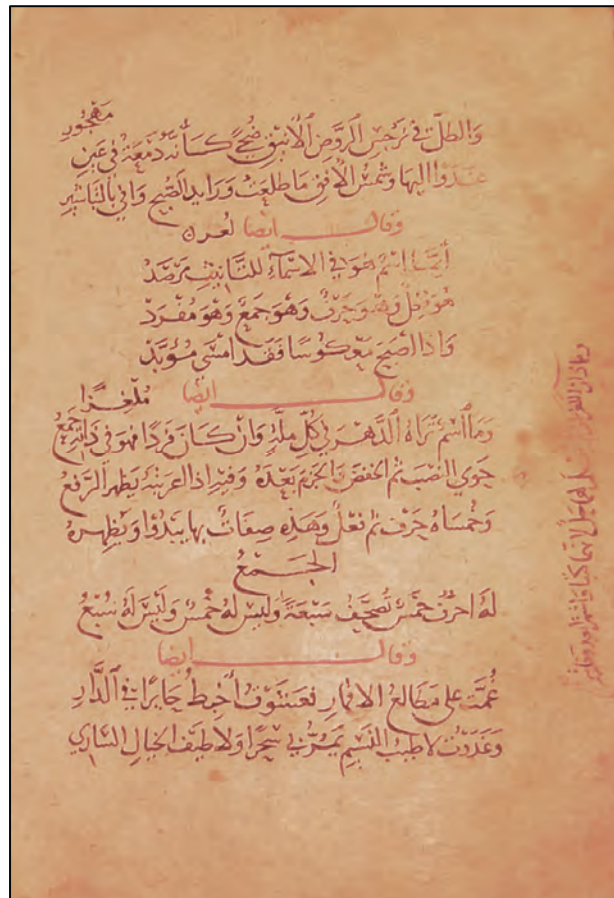 مهجور
والطل في نرجس الروض الانيق ضحى كأنه دمعة في عين
غدوا اليها وشمس الافق ما طلعت ورايد الصبح وافى بالتباشير
وقال ايضا لغز
أيما اسم هو في الاسماء للتانيث يرصد
هو فعل وهو حرف وهو جمع وهو مفرد
واذا اصبح مع كوسا فقد امسى مؤبد
وقال ايضا ملغزا
وما اسم تراه الدهر في كل ملة وان كان فردا فهو في ذاته جمع
حوى النصب ثم الخفض والجزم بعده وفيه اذا اعربته يظهر الرفع
وخمساه حرف ثم فعل وهذه صفات بها يبدوا ويظهره
الجمع
له احرف خمس تصحف سبعة وليس له خمس وليس له سبع
وقال ايضا
عمت على مطالع الاقمار فعـ أخبط حايرا في الدار
وغدوت لا طيب النسيم يمر بي سحرا ولا طيف الخيال الساري